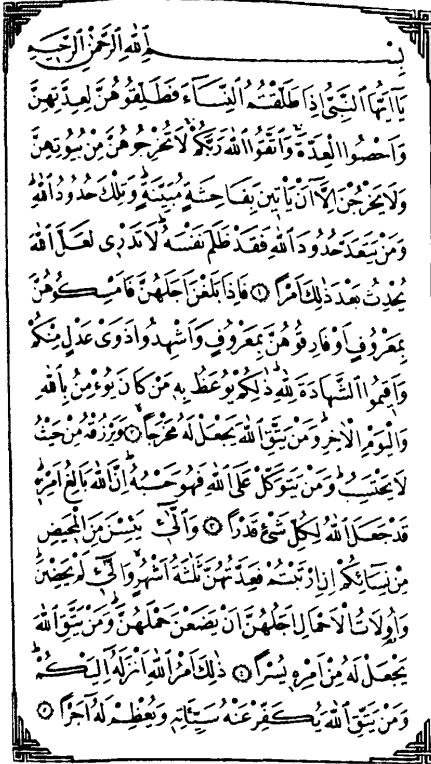 بِسْمِ اللّٰهِ الرَّحْمٰنِ الرَّحِيمِ
يَٓا اَيُّهَا النَّبِىُّ اِذَا طَلَّقْتُمُ النِّسَٓاءَ فَطَلِّقُوهُنَّ لِعِدَّتِهِنَّ
وَاَحْصُوا الْعِدَّةَۚ وَاتَّقُوا اللّٰهَ رَبَّكُمْۚ لَا تُخْرِجُوهُنَّ مِنْ بُيُوتِهِنَّ
وَلَا يَخْرُجْنَ اِلَّٓا اَنْ يَأْتِينَ بِفَاحِشَةٍ مُبَيِّنَةٍۜ وَتِلْكَ حُدُودُ اللّٰهِۜ
وَمَنْ يَتَعَدَّ حُدُودَ اللّٰهِ فَقَدْ ظَلَمَ نَفْسَهُۜ لَا تَدْرِى لَعَلَّ اللّٰهَ
يُحْدِثُ بَعْدَ ذٰلِكَ اَمْرًا ١ فَاِذَا بَلَغْنَ اَجَلَهُنَّ فَاَمْسِكُوهُنَّ
بِمَعْرُوفٍ اَوْ فَارِقُوهُنَّ بِمَعْرُوفٍ وَاَشْهِدُوا ذَوَىْ عَدْلٍ مِنْكُمْ
وَاَقِيمُوا الشَّهَادَةَ لِلّٰهِۜ ذٰلِكُمْ يُوعَظُ بِهِ مَنْ كَانَ يُؤْمِنُ بِاللّٰهِ
وَالْيَوْمِ الْاٰخِرِۜ وَمَنْ يَتَّقِ اللّٰهَ يَجْعَلْ لَهُ مَخْرَجًا ٢ وَيَرْزُقْهُ مِنْ حَيْثُ
لَا يَحْتَسِبُۜ وَمَنْ يَتَوَكَّلْ عَلَى اللّٰهِ فَهُوَ حَسْبُهُۜ اِنَّ اللّٰهَ بَالِغُ اَمْرِهِۜ
قَدْ جَعَلَ اللّٰهُ لِكُلِّ شَىْءٍ قَدْرًا ٣ وَالّٰٓئِ يَئِسْنَ مِنَ الْمَحِيضِ
مِنْ نِسَٓائِكُمْ اِنِ ارْتَبْتُمْ فَعِدَّتُهُنَّ ثَلٰثَةُ اَشْهُرٍۙ وَالّٰٓئِ لَمْ يَحِضْنَۜ
وَاُولَاتُ الْاَحْمَالِ اَجَلُهُنَّ اَنْ يَضَعْنَ حَمْلَهُنَّۜ وَمَنْ يَتَّقِ اللّٰهَ
يَجْعَلْ لَهُ مِنْ اَمْرِهِ يُسْرًا ٤ ذٰلِكَ اَمْرُ اللّٰهِ اَنْزَلَهُٓ اِلَيْكُمْۜ
وَمَنْ يَتَّقِ اللّٰهَ يُكَفِّرْ عَنْهُ سَيِّـَٔاتِهِ وَيُعْظِمْ لَهُٓ اَجْرًا ٥